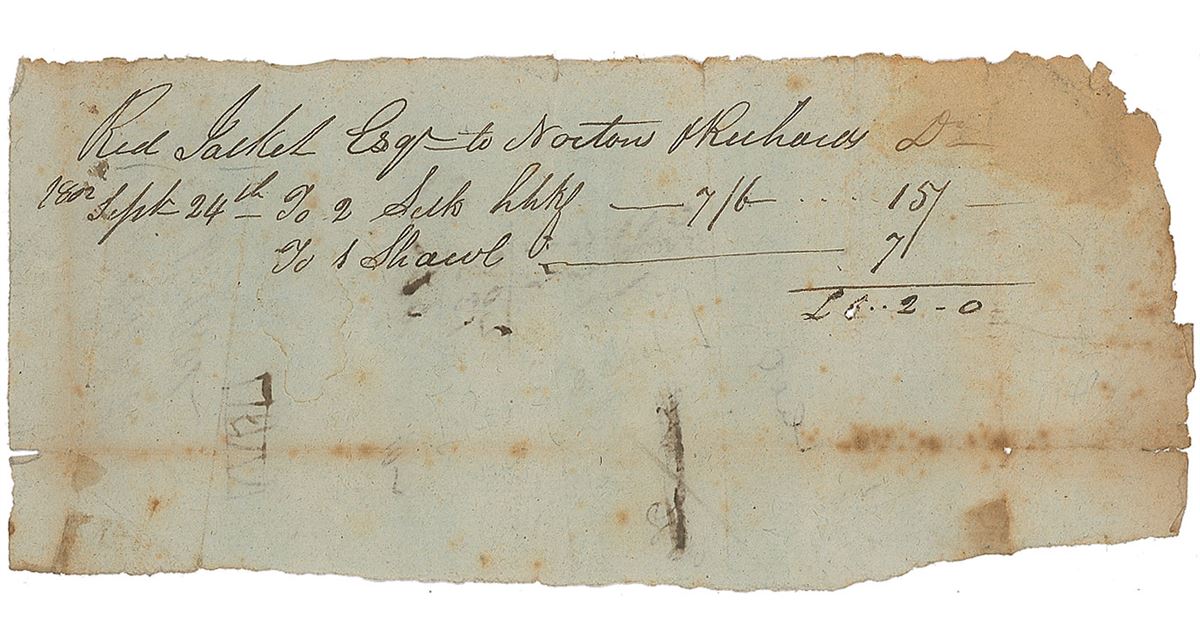 Red Jacket Esqr to Norton & Richards Dr
1802 Sept 24th To 2 Silk hhkf — 7/6 .... 15/ —
To 1 Shawl — 7/
£1..2-0